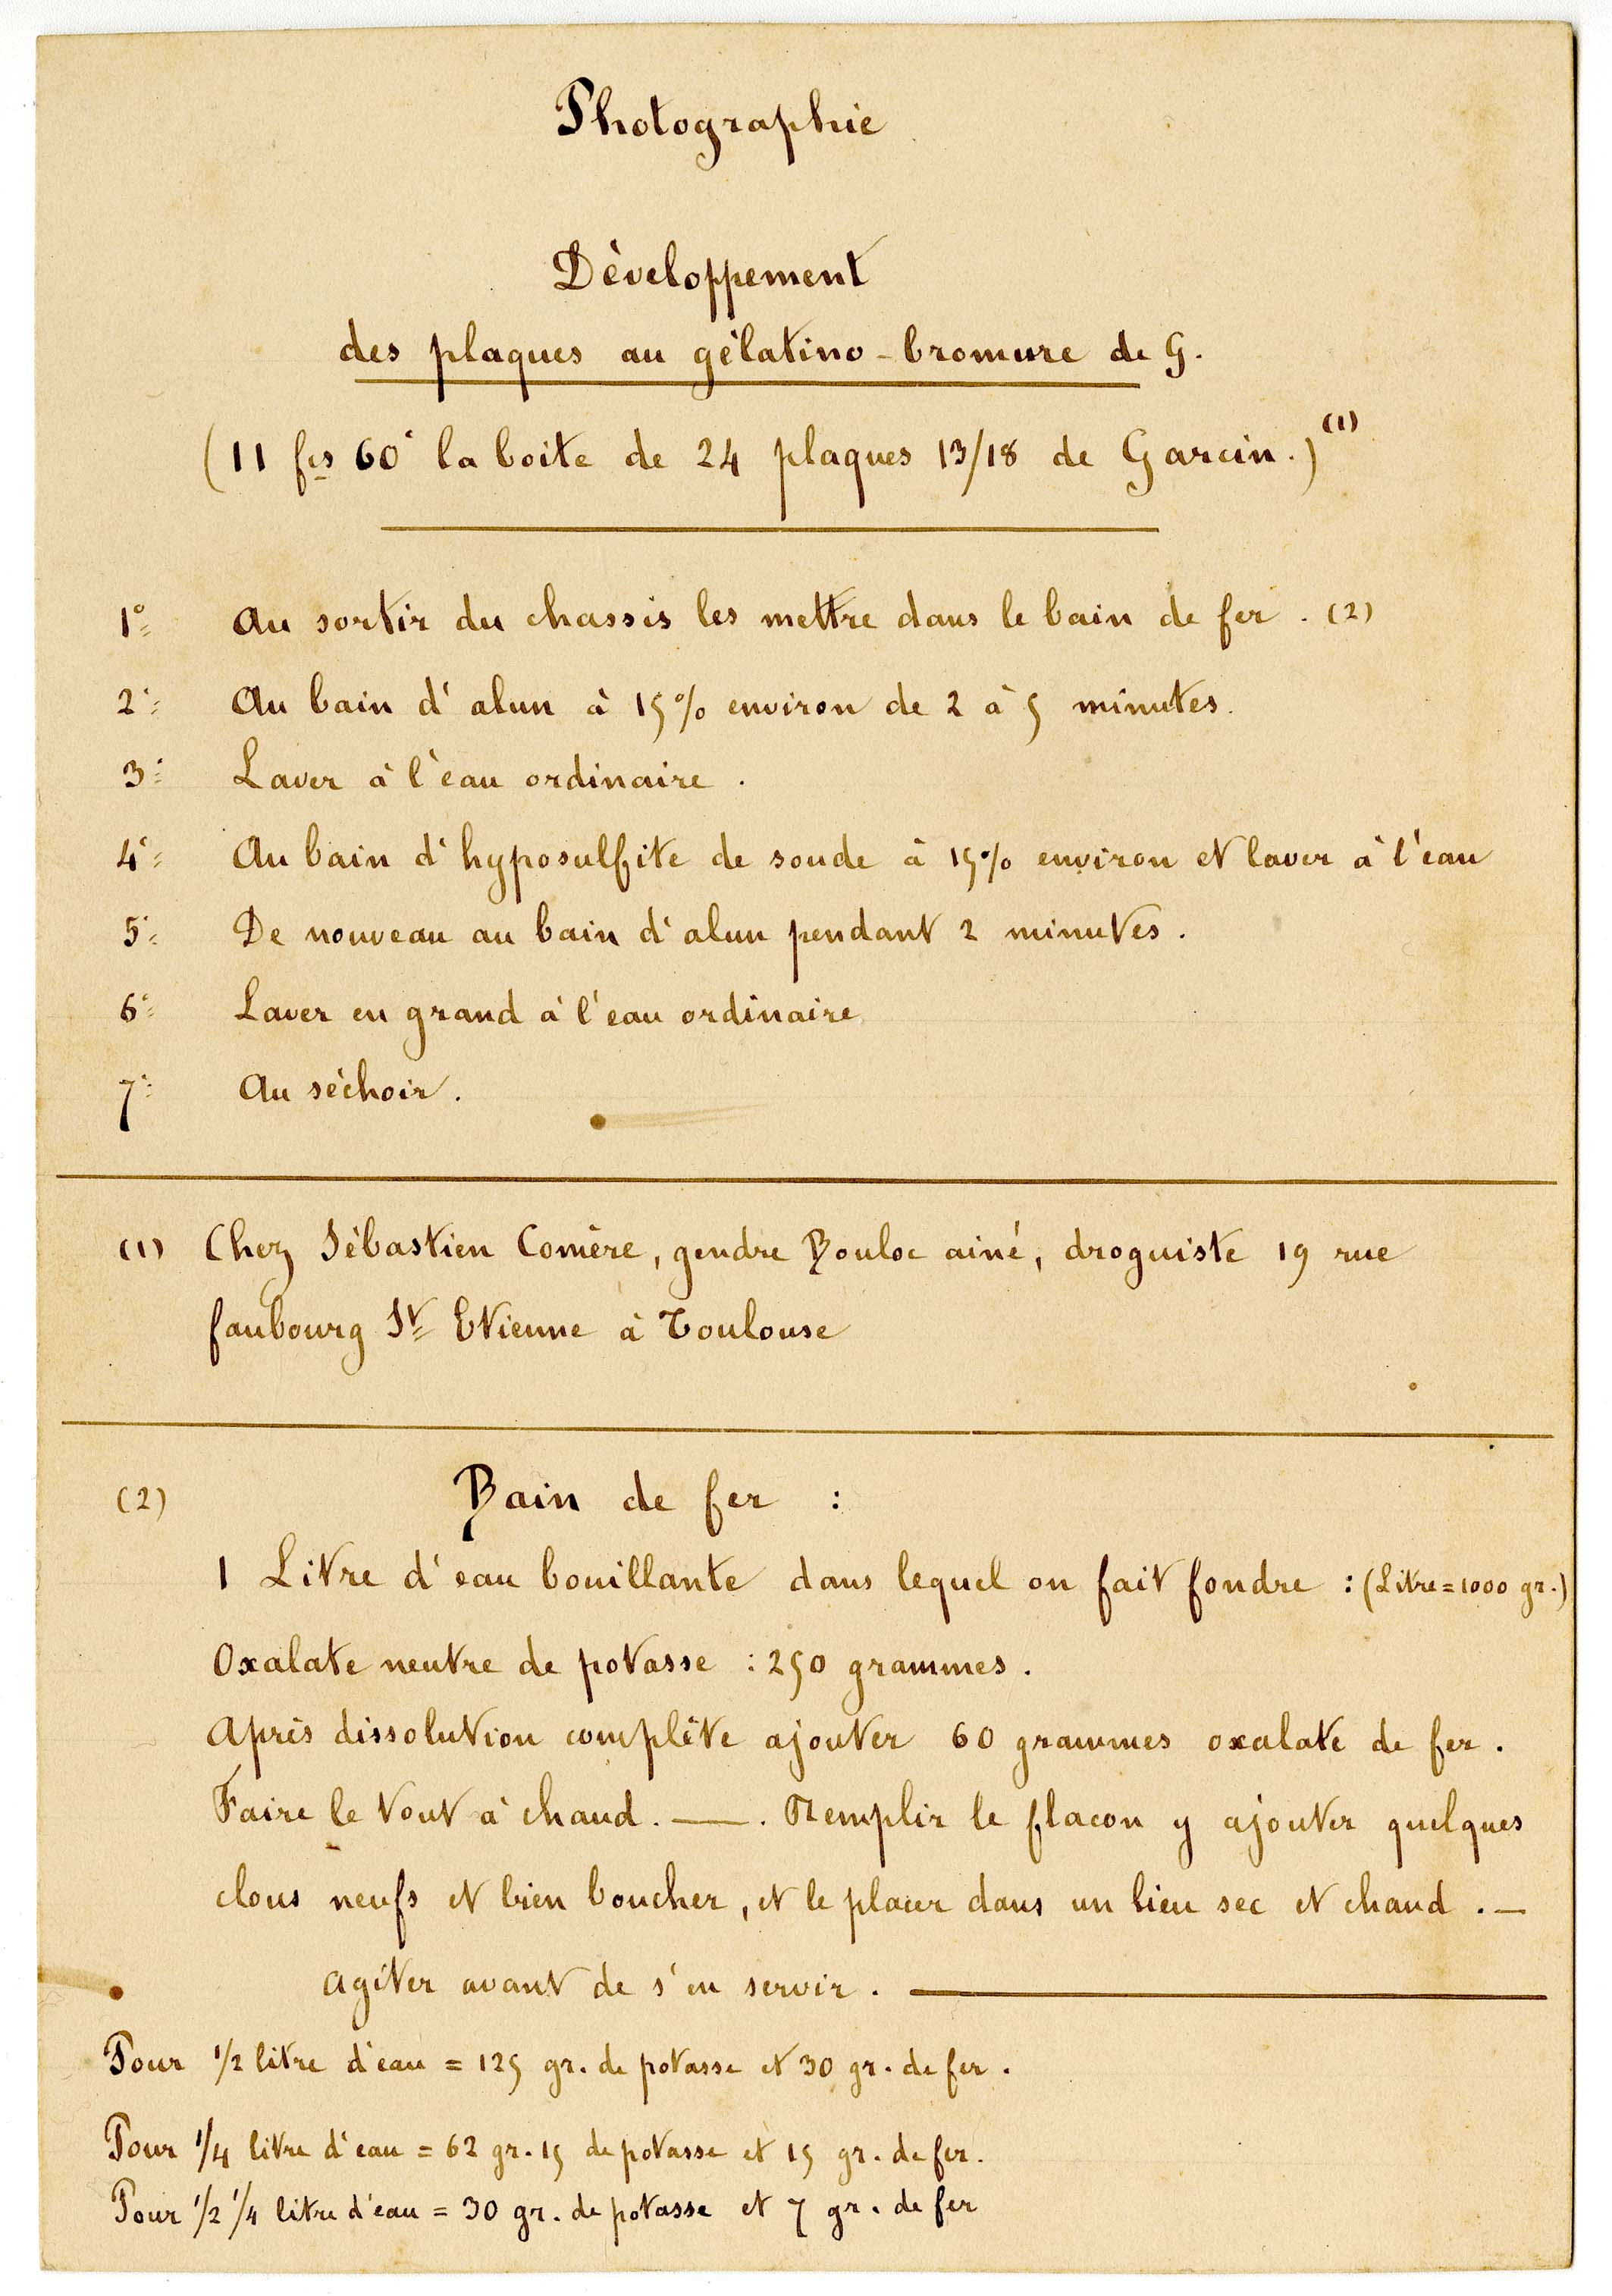 Photographie
Développement
des plaques au gélatino-bromure de G.
(11 frs 60c la boite de 24 plaques 13/18 de Garcin.) (1)
1° Au sortir du chassis les mettre dans le bain de fer. (2)
2° Au bain d'alun à 15% environ de 2 à 5 minutes.
3° Laver à l'eau ordinaire.
4° Au bain d'hyposulfite de soude à 15% environ et laver à l'eau
5° De nouveau au bain d'alun pendant 2 minutes.
6° Laver en grand à l'eau ordinaire
7° Au séchoir.
(1) Chez Sébastien Comère, gendre Bouloc ainé, droguiste 19 rue
faubourg St Etienne à Toulouse
(2) Bain de fer :
1 Litre d'eau bouillante dans lequel on fait fondre : (Litre = 1000 gr.)
Oxalate neutre de potasse : 250 grammes.
Après dissolution complète ajouter 60 grammes oxalate de fer.
Faire le tout à chaud. —. Remplir le flacon y ajouter quelques
clous neufs et bien boucher, et le placer dans un lieu sec et chaud. —
Agiter avant de s'en servir. —
Pour 1/2 litre d'eau = 125 gr. de potasse et 30 gr. de fer.
Pour 1/4 litre d'eau = 62 gr. 15 de potasse et 15 gr. de fer.
Pour 1/2 1/4 litre d'eau = 30 gr. de potasse et 7 gr. de fer